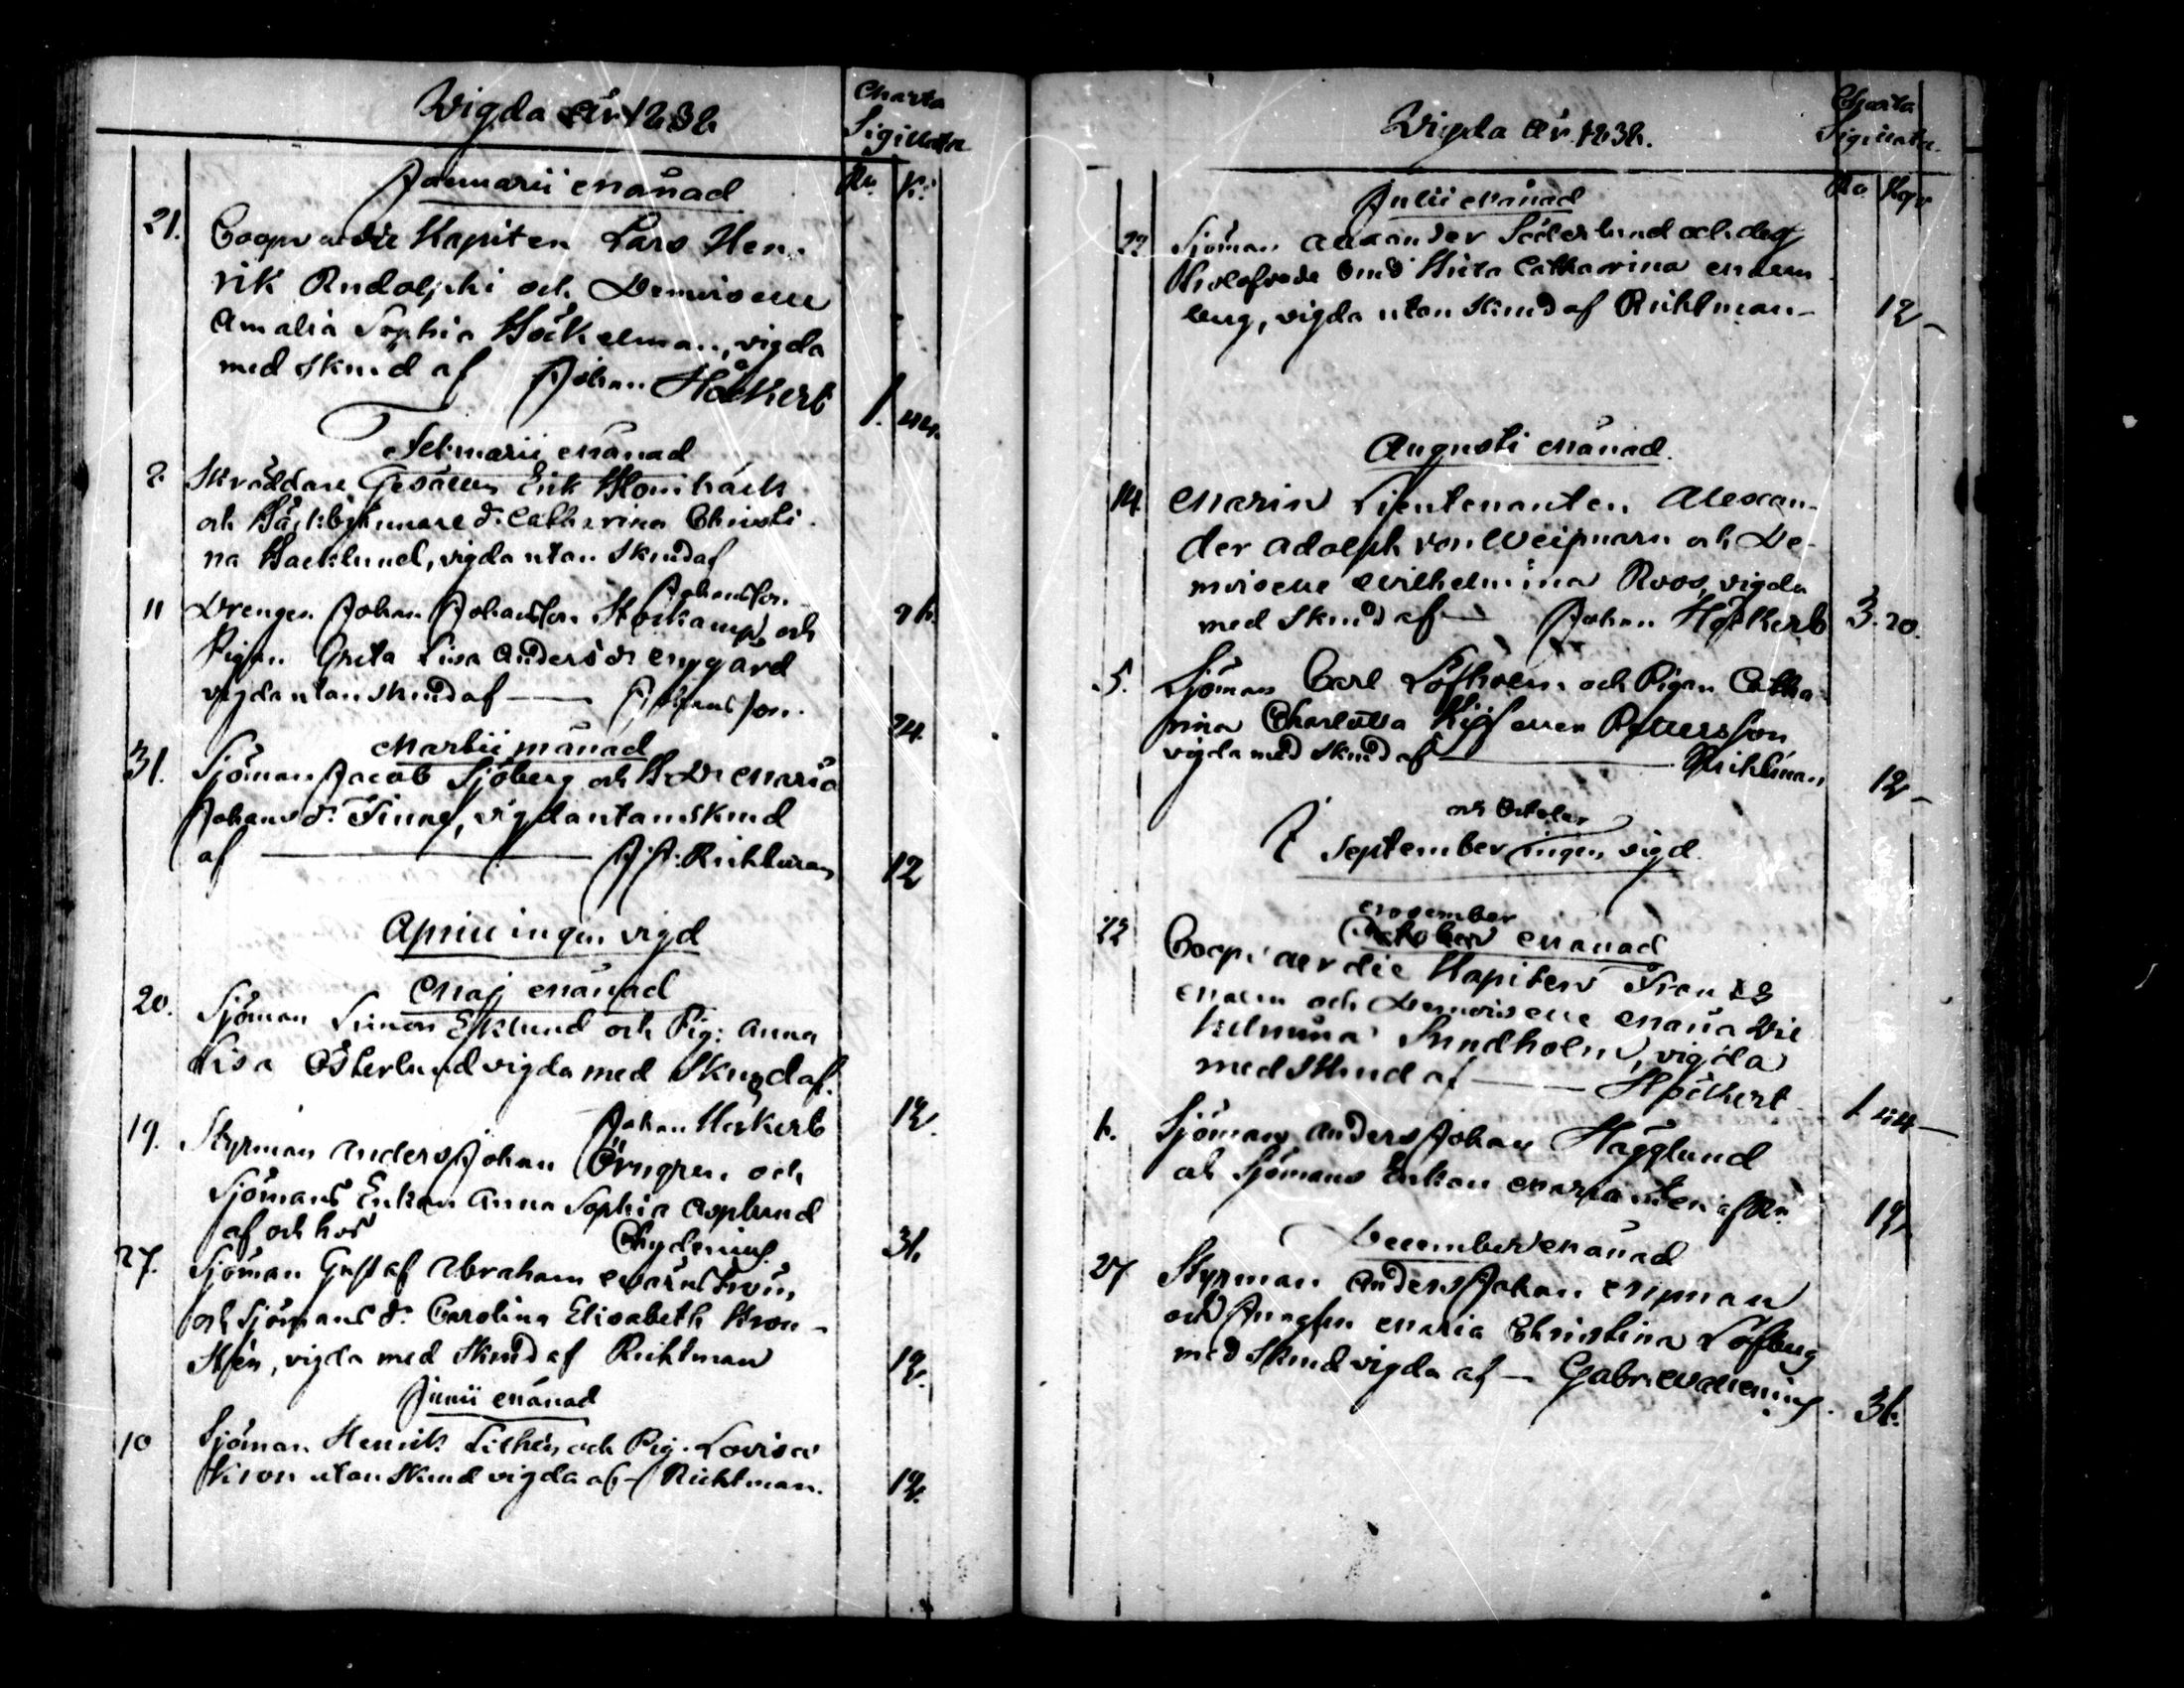 Wigda år 1838
Charta
Sigillata
Januarii månad
Ru. K:
21. Coopvardie Kapiten Lars Hen-
rik Rudolphi och Demoiselle
Amalia Sophia Böckelman, vigda
med skuud af Johan Höckert 1. 44.
Februarii månad
8. Skräddare Gesällen Erik
och d: Catharina Christi-
na Backlund, vigda utan skuud af
Johansson
11 Drengen Johan Johansson och
Pigan Greta Lisa Anders dr Nygård
vigda utan skuud af — Johansson. 24.
Martii månad
31. Sjöman Jacob Sjöberg och B. Dr Maria
Johans dr Finne, vigda utan skuud
af — Richtman 12
Aprill ingen vigd
Maj månad
20. Sjöman Simon Esklund och Pig: Anna
Lisa Österlund vigda med skuud af.
Johan Höckert 12.
19. Styrman Anders Johan Örngren och
Sjömans Enkan Anna Sophia Asplund
af och hos Chydenius 36.
27. Sjöman Gustaf Abraham
och Sjömans dr Carolina Elisabeth Kron-
, vigda med skuud af Richtman 12.
Junii månad
10 Sjöman Henrik Lithén och Pig. Lovisa
Kron utan skuud vigda af – Richtman. 12.
Wigda år 1838.
Charta
Sigillata
Ro. Kop
Julii månad
22 Sjöman Alexander Söderlund och
Catharina
berg, vigda utan skuud af Richtman – 12 –
Augusti månad.
14 Marin Lieutenanten Alexan-
der Adolph von Weipmarn och De-
moiselle Wilhelmina Roos, vigda
med skuud af — Johan Höckert 3. 20.
5. Sjöman Carl Löfholm och Pigan Catha-
rina Charlotta Pettersson
vigda med skuud af — Richtman 12 –
och October
I September ingen vigd.
November
October månad
22 Coopvaerdie Kapiten Frans
Malm och Demoiselle Maria Wil
helmina Sundholm, vigda
med skuud af — Höckert 1 44 –
6. Sjöman Anders Johan Hägglund
och Sjömans Enkan Maria af Rn. 12
December månad
27 Styrman Anders Johan Nyman
och Jungfru Maria Christina Löfberg
med skuud vigda af — Gabr. Wallenius. 36.